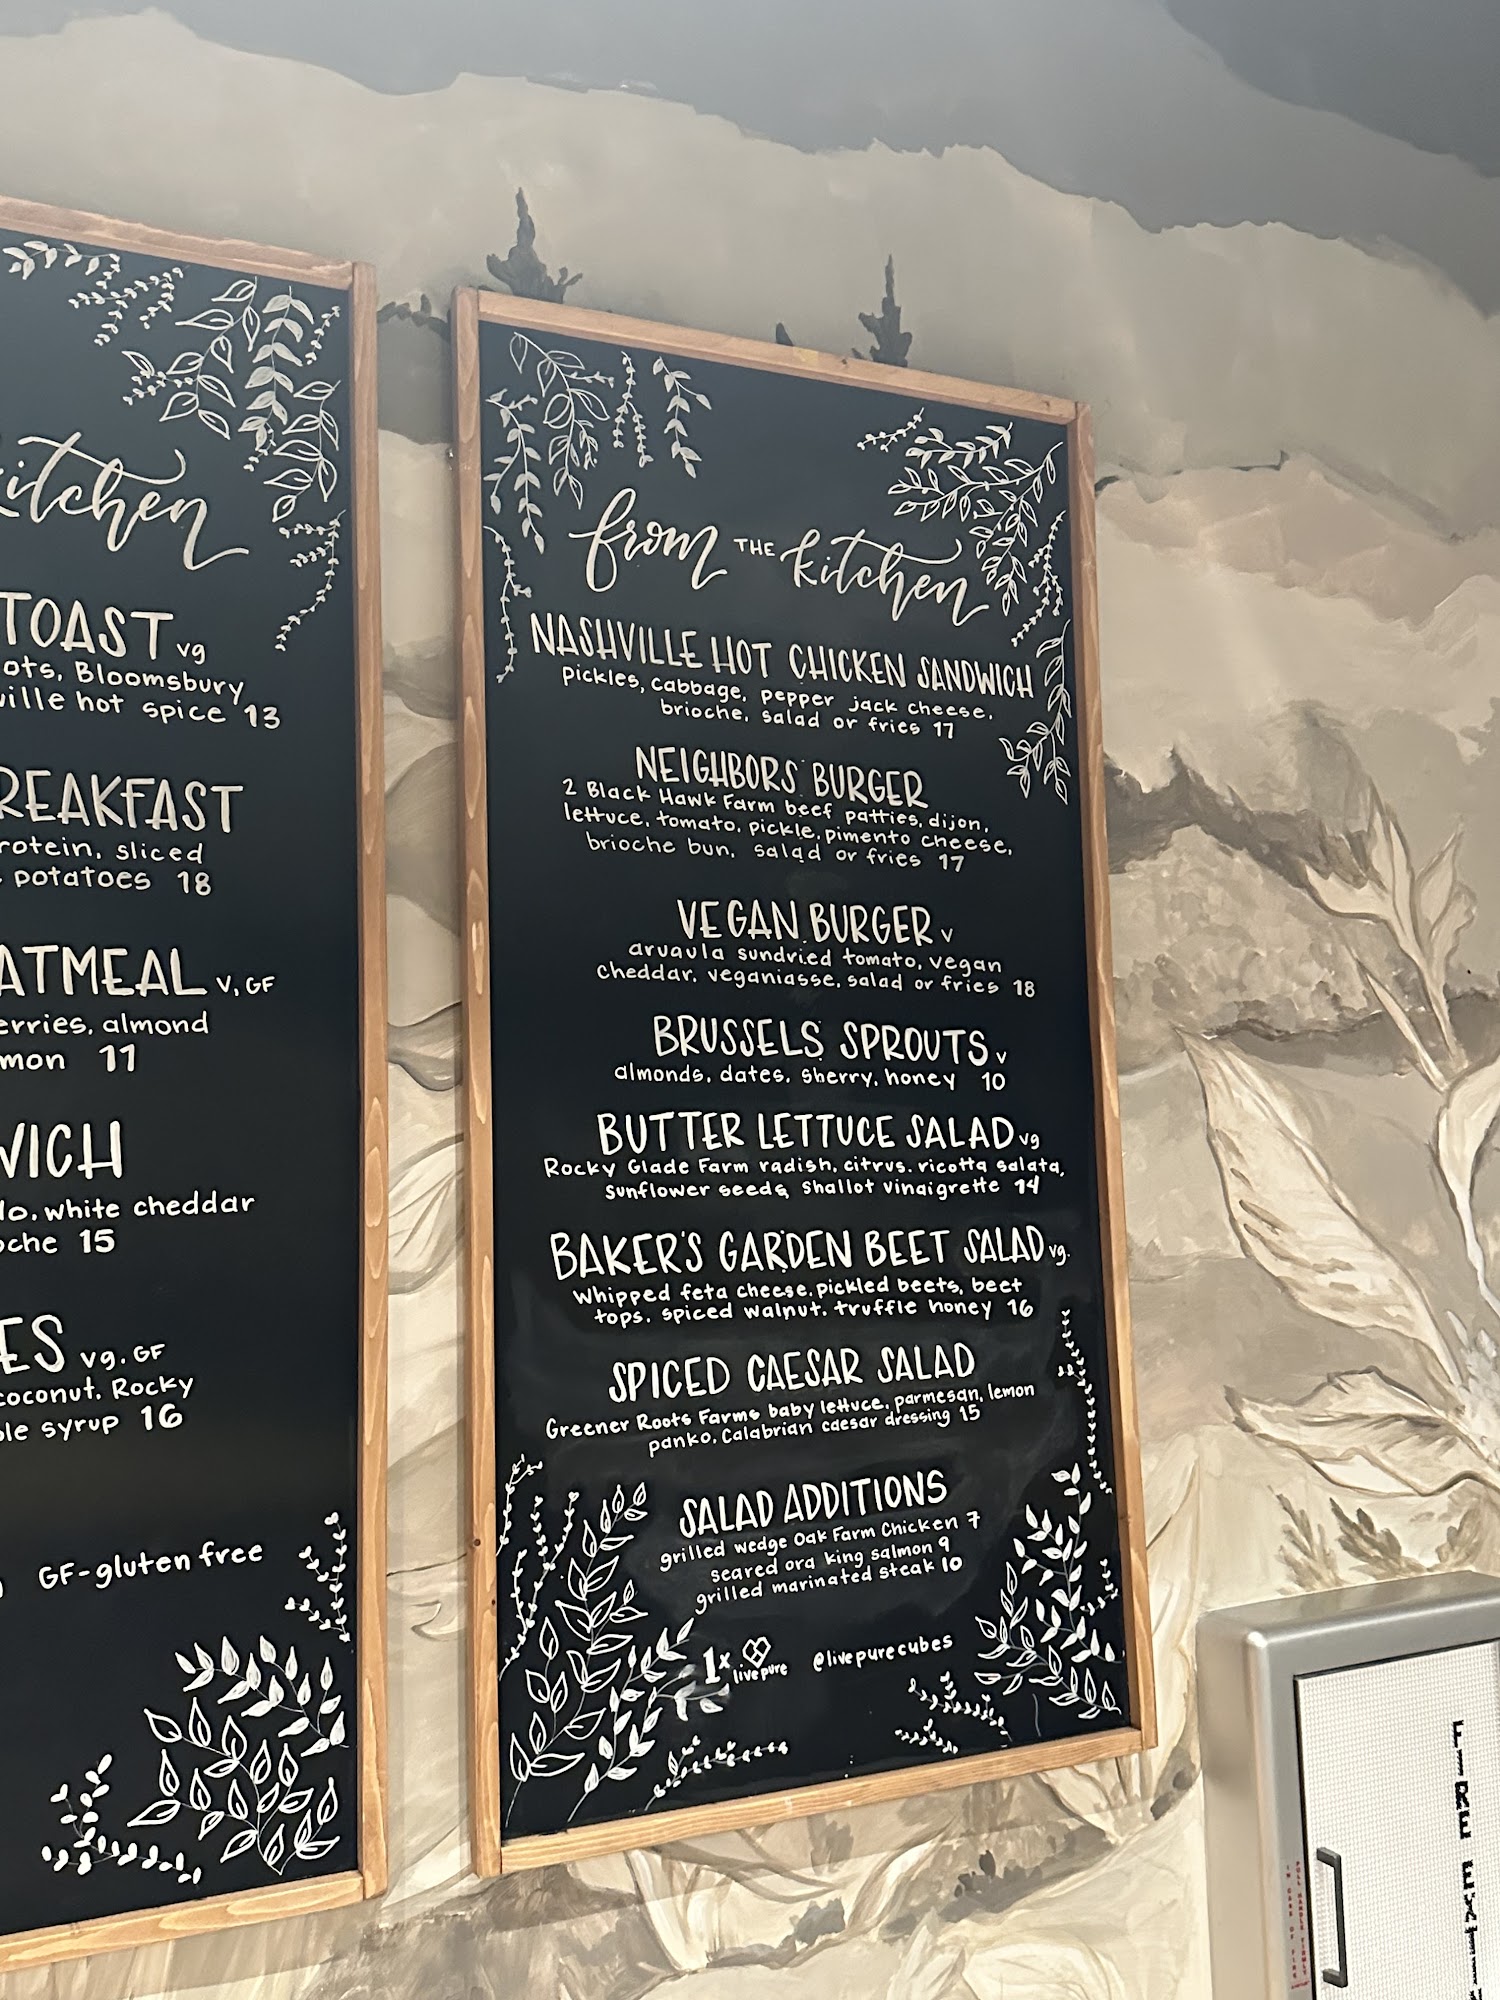 kitchen
TOAST vg
ots, Bloomsbury
ville hot spice 13
REAKFAST
rotein, sliced
potatoes 18
ATMEAL V, GF
erries, almond
mon 11
WICH
do, white cheddar
oche 15
ES vg, GF
coconut, Rocky
ple syrup 16
GF-gluten free
from THE kitchen
NASHVILLE HOT CHICKEN SANDWICH
pickles, cabbage, pepper jack cheese,
brioche, salad or fries 17
NEIGHBORS BURGER
2 Black Hawk Farm beef patties, dijon,
lettuce, tomato, pickle, pimento cheese,
brioche bun, salad or fries 17
VEGAN BURGER V
aruaula sundried tomato, vegan
cheddar, veganiasse, salad or fries 18
BRUSSELS SPROUTS V
almonds, dates, sherry, honey 10
BUTTER LETTUCE SALAD vg
Rocky Glade Farm radish, citrus, ricotta salata,
sunflower seeds, shallot vinaigrette 14
BAKER'S GARDEN BEET SALAD vg.
whipped feta cheese, pickled beets, beet
tops, spiced walnut, truffle honey 16
SPICED CAESAR SALAD
Greener Roots Farms baby lettuce, parmesan, lemon
panko, Calabrian caesar dressing 15
SALAD ADDITIONS
grilled wedge Oak Farm Chicken 7
seared ora king salmon 9
grilled marinated steak 10
1x livepure @livepurecubes
FIRE
PULL HANDLE FIRMLY
IN CASE OF FIRE